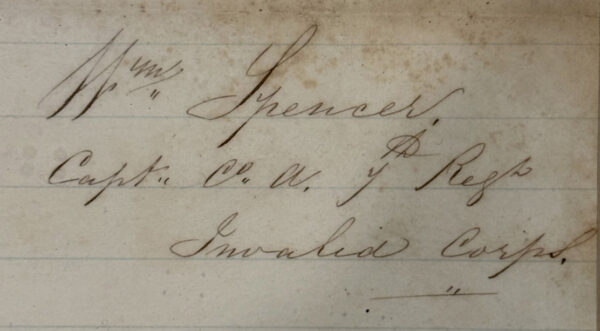 Wm Spencer.
Capt. Co. A. 7th Regt
Invalid Corps.